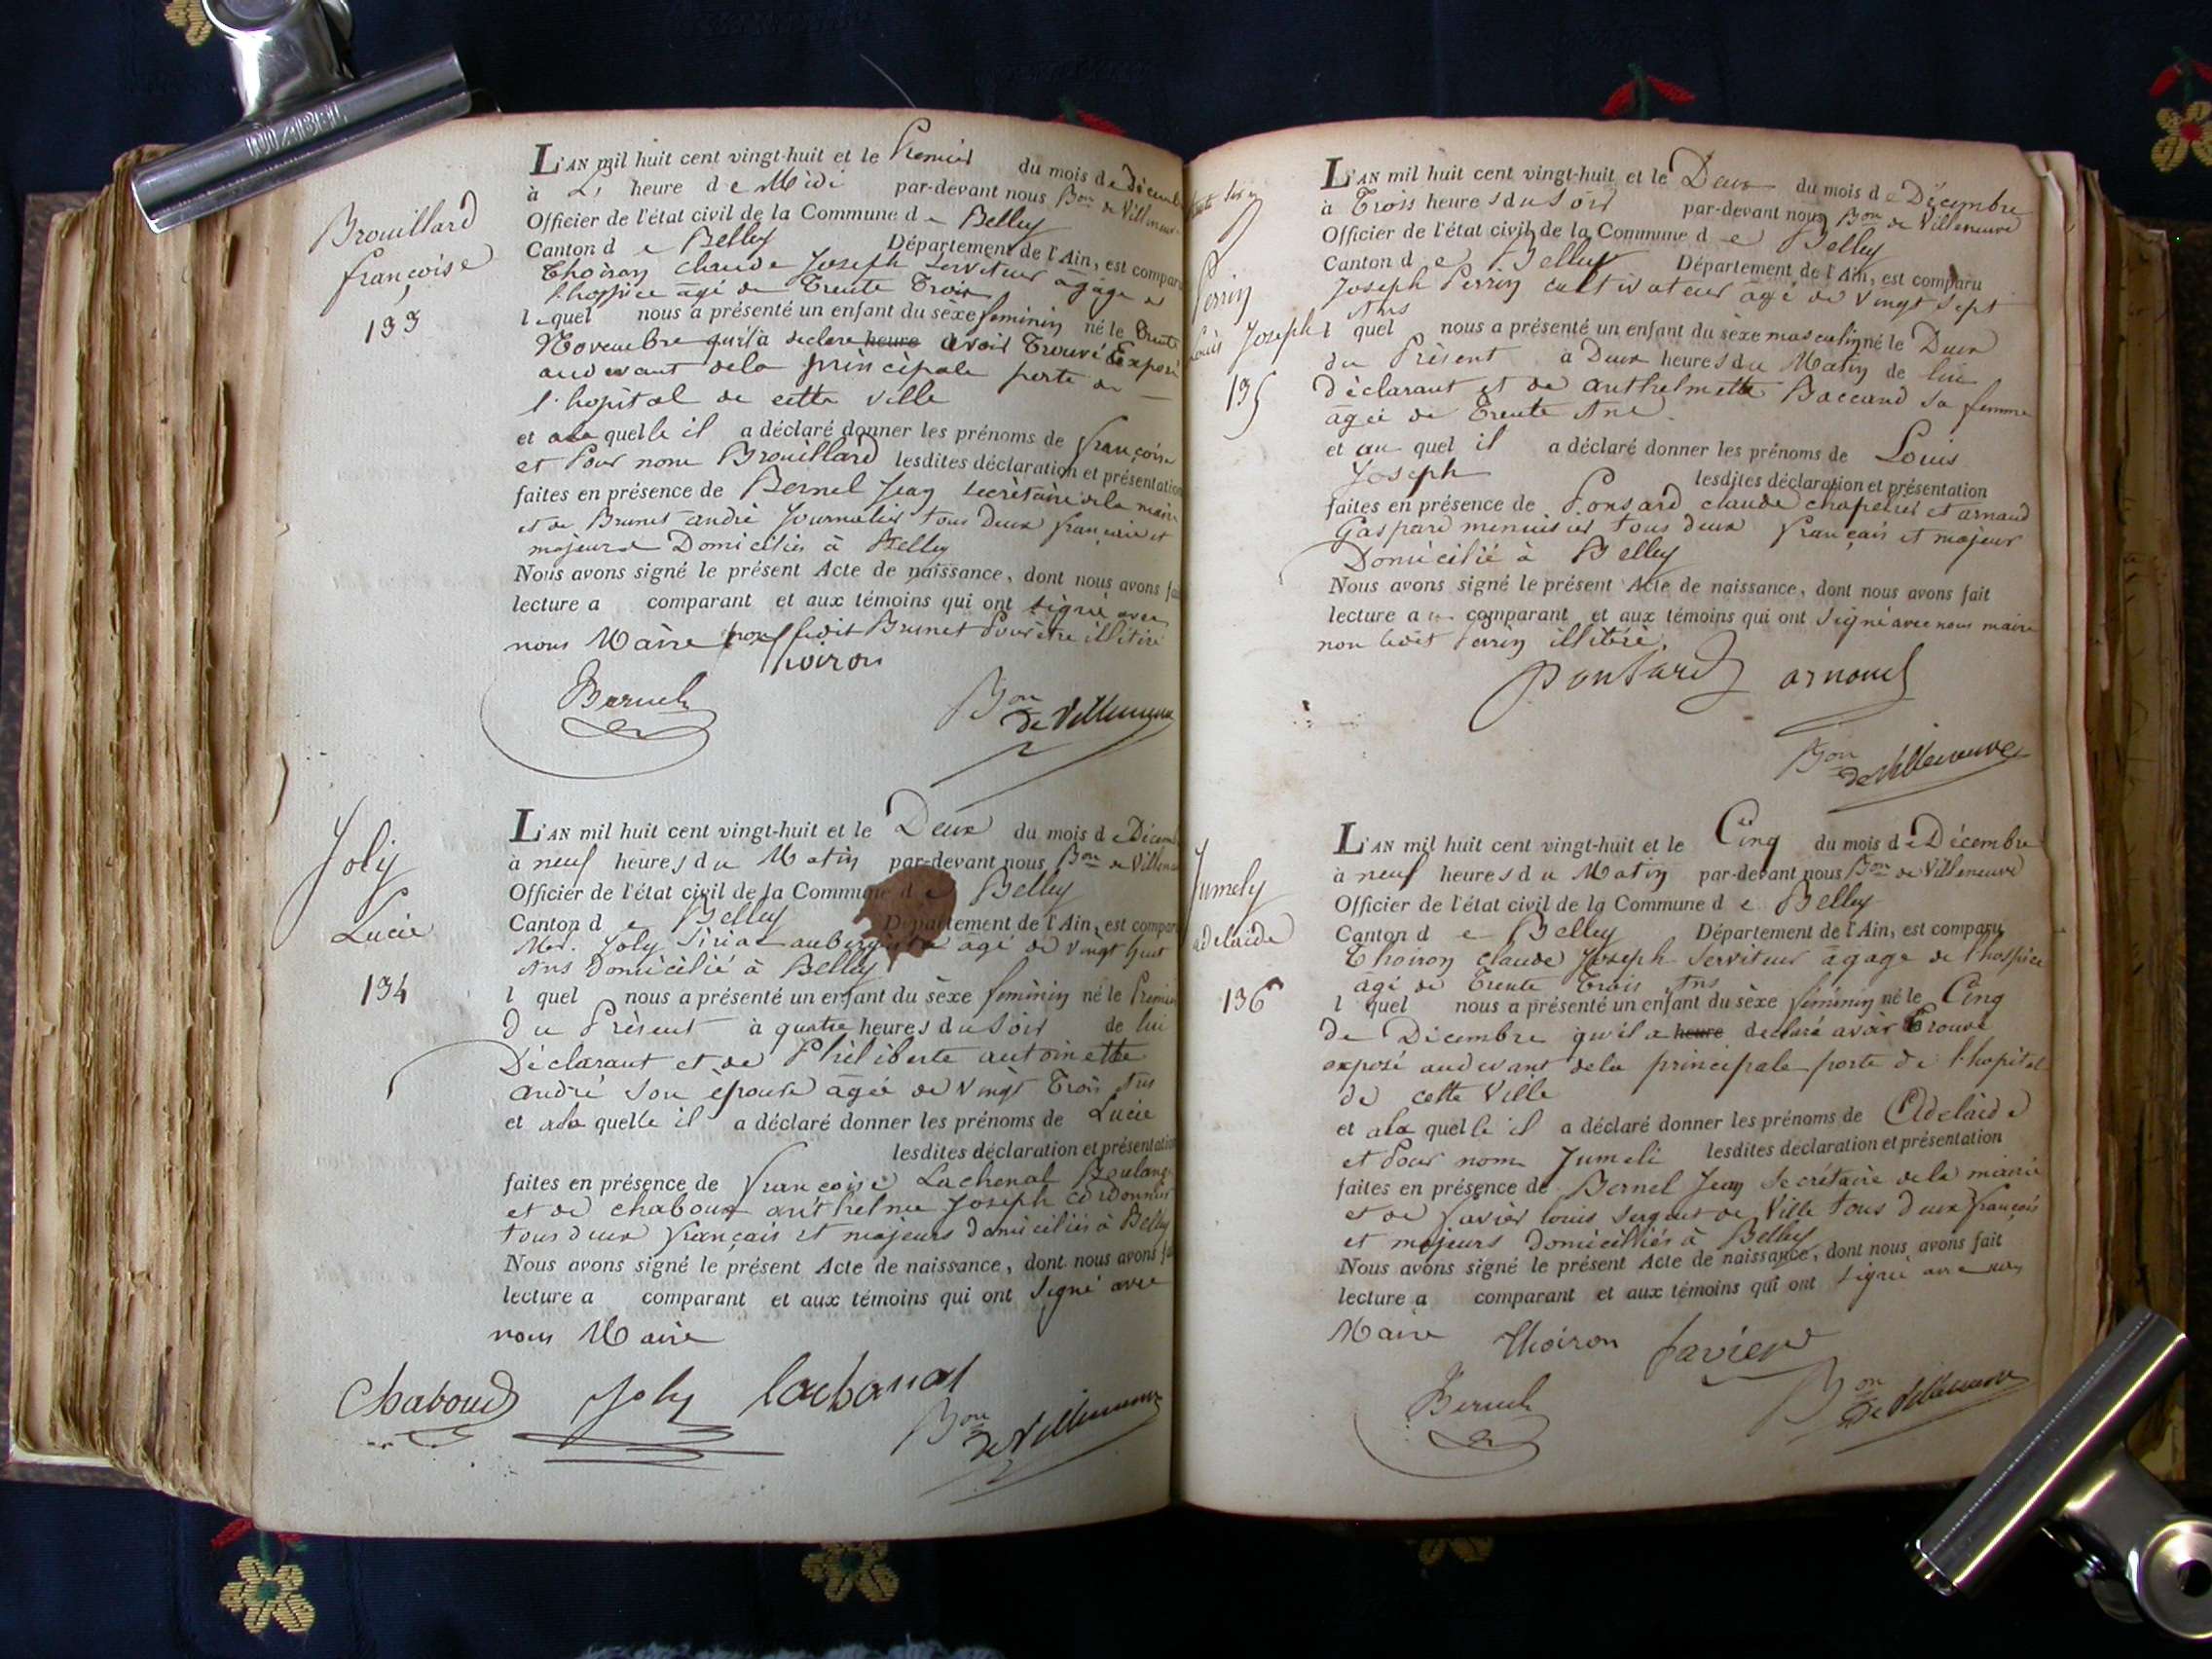 Brouillard
françoise
133
L'AN mil huit cent vingt-huit et le Premier du mois de Décemb
à L' heure de Midi par-devant nous Bon de Villeneuve
Officier de l'état civil de la Commune de Belley
Canton de Belley Département de l'Ain, est comparu
Thoiron claude Joseph Serviteur agage de
l'hospice âgé de Trente Trois
lequel nous a présenté un enfant du sèxe feminin né le Trente
Novembre qu'il a declare heure avoir Trouvé Exposé
audevant dela principale porte de
l'hopital de cette ville
et ala quelle il a déclaré donner les prénoms de françoise
et Pour nom Brouillard lesdites déclaration et présentation
faites en présence de Bernel Jean Secrètaire dela mairie
et de Brunet andré Journalier tous Deux français et
majeurs Domiciliés à Belley
Nous avons signé le présent Acte de naissance, dont nous avons fai
lecture a comparant et aux témoins qui ont signé avec
nous Maire non ledit Brunet Pour être illitiré
Thoiron
Bernel
Bon de Villeneuve
Joly
Lucie
134
L'AN mil huit cent vingt-huit et le Deux du mois de Décem
à neuf heures du Matin par-devant nous Bon de Villeneu
Officier de l'état civil de la Commune de Belley
Canton de Belley Département de l'Ain, est comparu
Joly aubergiste âgé de vingt huit
Ans Domicilié à Belley
l quel nous a présenté un enfant du sèxe feminin né le Premier
Du Prèsent à quatre heures du Soir de lui
Déclarant et de Philiberte antoinette
andré son épouse âgée de vingt Trois Ans
et ala quelle il a déclaré donner les prénoms de Lucie
lesdites déclaration et présentation
faites en présence de françois Lachenal Boulanger
et de chaboux anthelme Joseph cordonnier
tous deux français et majeurs domiciliés à Belley
Nous avons signé le présent Acte de naissance, dont nous avons fa
lecture a comparant et aux témoins qui ont Signé avec
nous Maire
Chaboud Joly Lachanal
Bon de Villeneuve
Perrin
Louis Joseph
135
L'AN mil huit cent vingt-huit et le Deux du mois de Décembre
à Trois heures du Soir par-devant nous Bon de Villeneuve
Officier de l'état civil de la Commune de Belley
Canton de Belley Département de l'Ain, est comparu
Joseph Perrin cultivateur âgé de vingt Sept
Ans
l quel nous a présenté un enfant du sèxe masculin né le Deux
du Présent à Deux heures du Matin de lui
déclarant et de anthelmette Baccard Sa femme
âgée de Trente Ans
et au quel il a déclaré donner les prénoms de Louis
Joseph lesdites déclaration et présentation
faites en présence de Ponsard claude chapelier et arnaud
Gaspard menuisier tous deux français et majeur
Domicilié à Belley
Nous avons signé le présent Acte de naissance, dont nous avons fait
lecture au comparant et aux témoins qui ont Signé avec nous maire
non ledit Perrin illitéré.
Ponsard arnaud
Bon de Villeneuve
Jumely
adelaide
136
L'AN mil huit cent vingt-huit et le Cinq du mois de Décembre
à neuf heures du Matin par-devant nous Bon de Villeneuve
Officier de l'état civil de la Commune de Belley
Canton de Belley Département de l'Ain, est comparu
Thoiron claude Joseph Serviteur âgage de l'hospice
âgé de Trente Trois Ans
l quel nous a présenté un enfant du sèxe féminin né le Cinq
de Décembre qu'il a heure declaré avoir Trouvé
exposé audevant dela principale porte de l'hopital
de cette Ville
et ala quelle il a déclaré donner les prénoms de Adelaide
et Pour nom Jumeli lesdites déclaration et présentation
faites en présence de Bernel Jean Secrétaire dela mairie
et de favier louis Sergent de Ville tous deux français
et majeurs domiciliés à Belley
Nous avons signé le présent Acte de naissance, dont nous avons fait
lecture a comparant et aux témoins qui ont Signé avec nous
Maire Thoiron favier
Bernel
Bon de Villeneuve